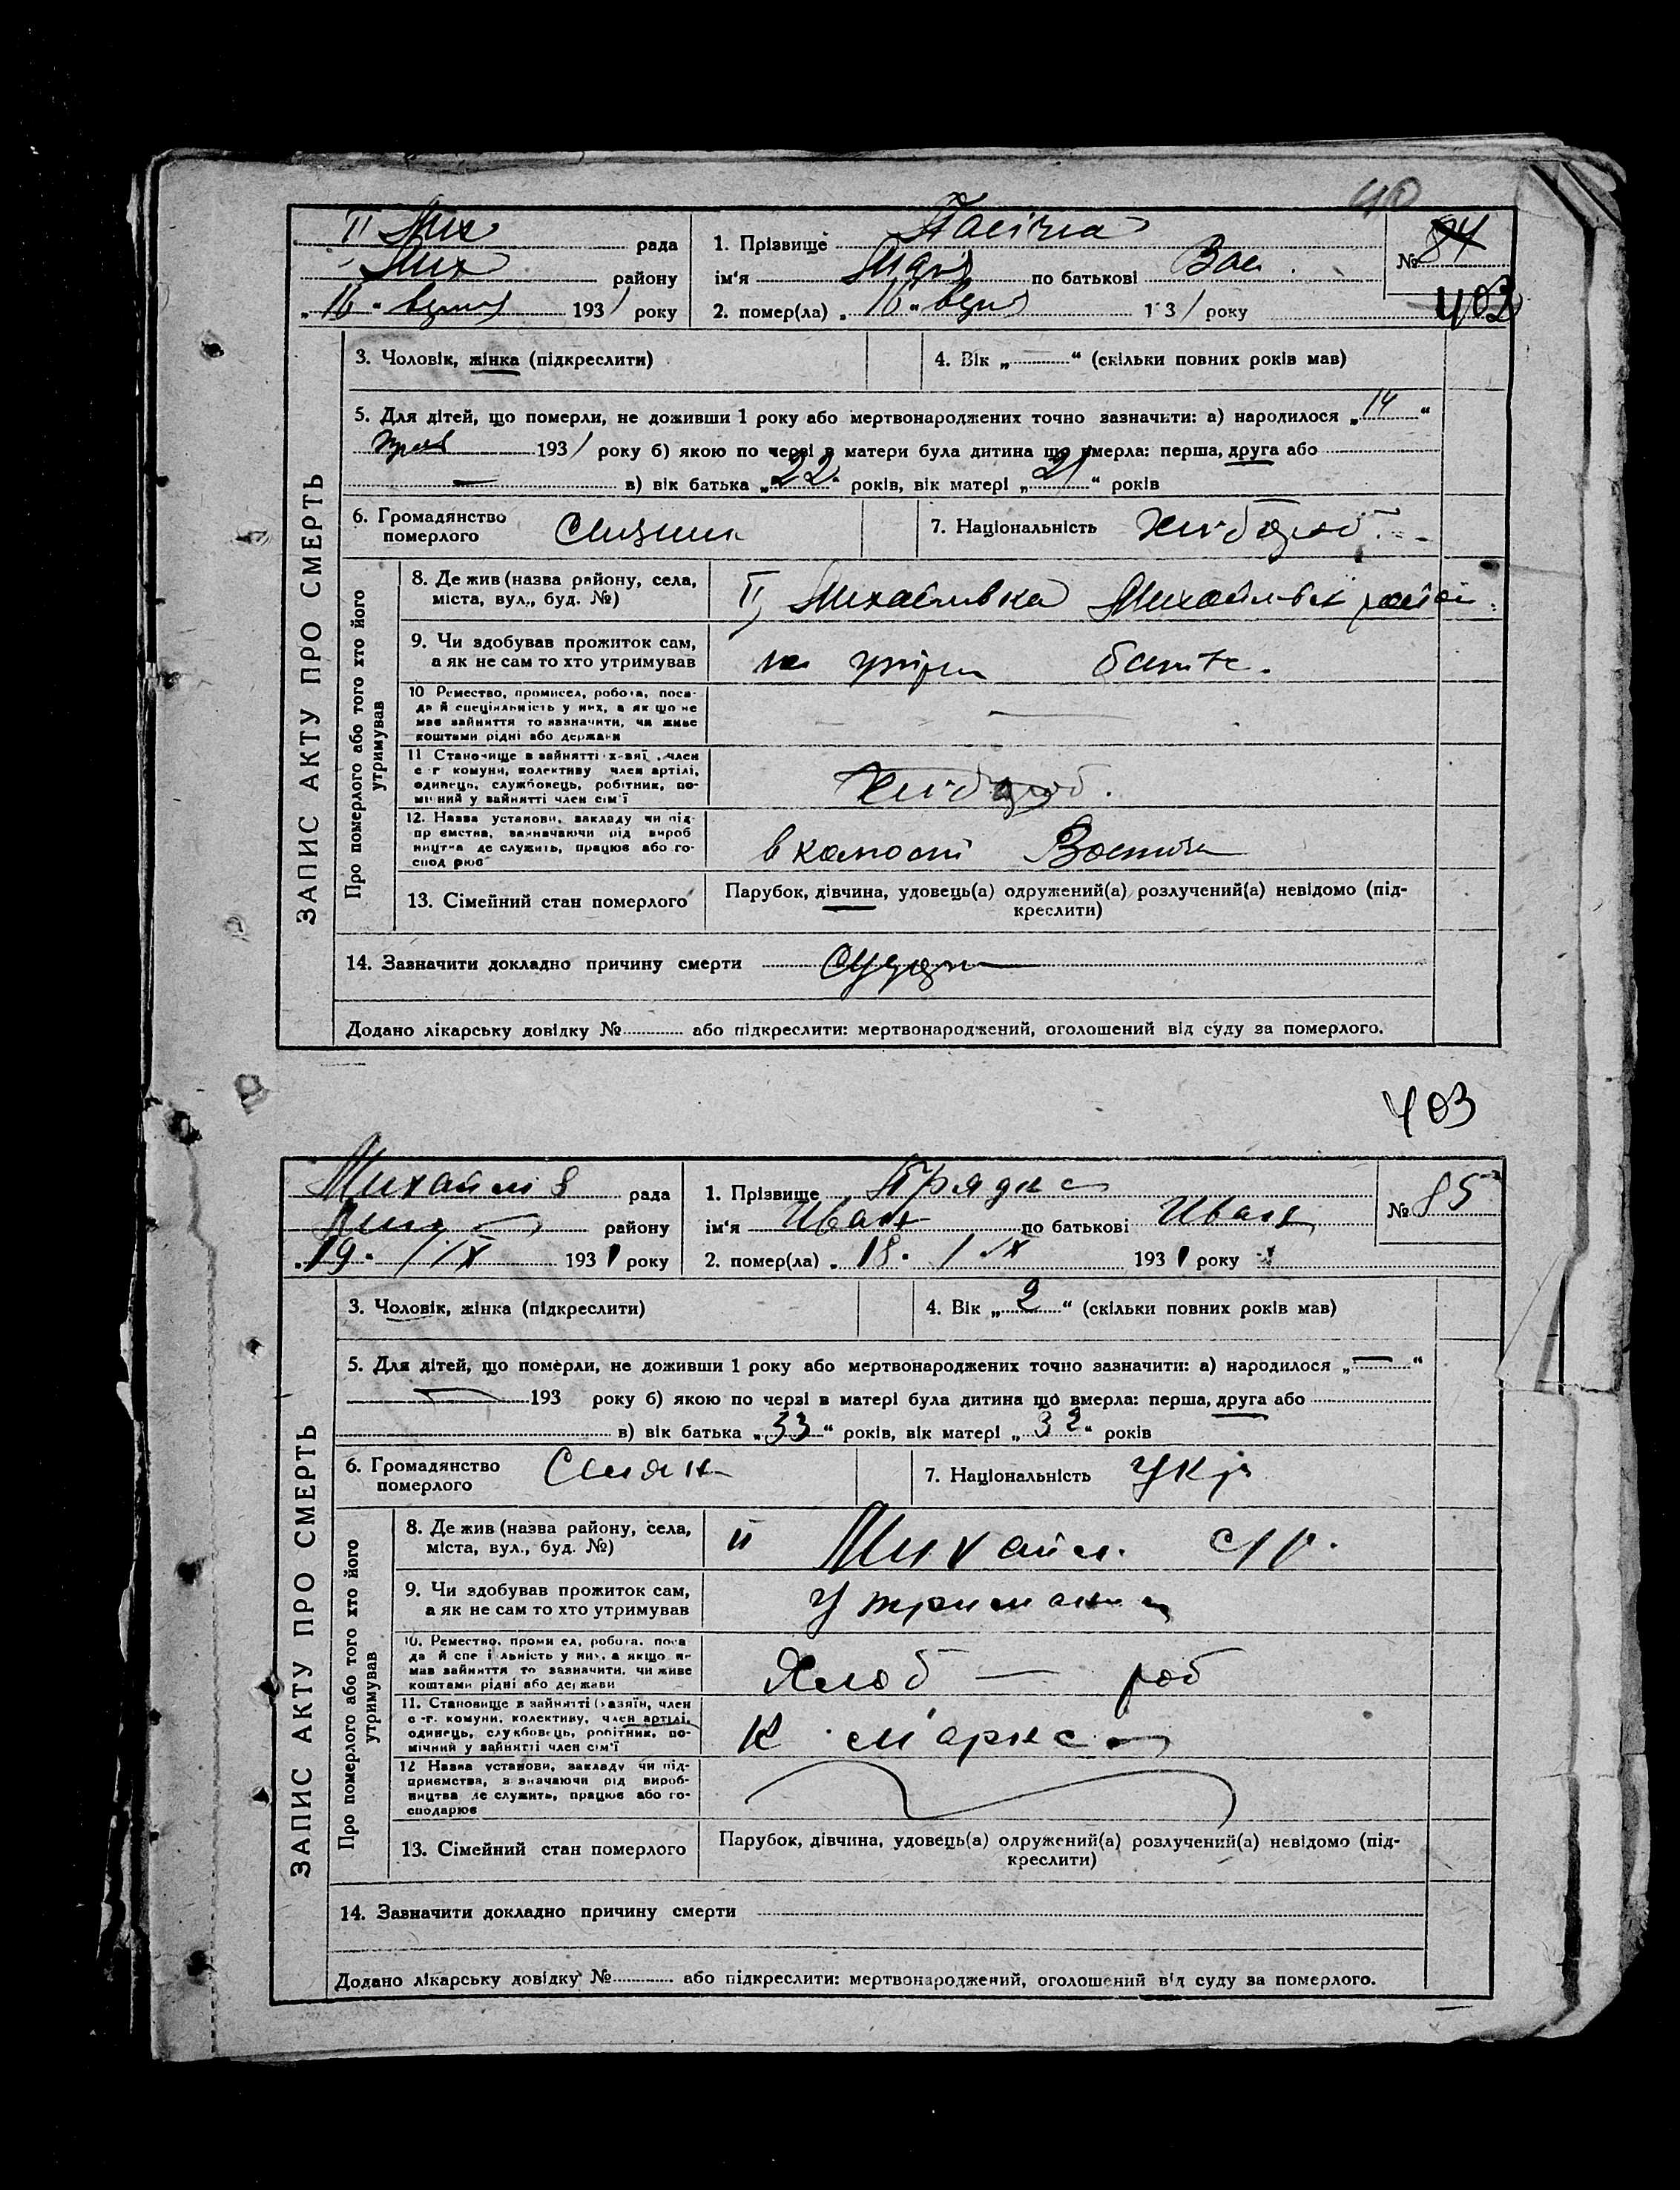 40
II Мих рада
Мих району
„16“ 1931 року
1. Прізвище Пасічна
ім‘я Марія по батькові Вас.
2. помер(ла) „16“ 1931 року
№ 84
402
ЗАПИС АКТУ ПРО СМЕРТЬ
3. Чоловік, жінка (підкреслити)
4. Вік „—“ (скільки повних років мав)
5. Для дітей, що померли, не доживши 1 року або мертвонароджених точно зазначити: а) народилося „14“
1931 року б) якою по черзі в матери була дитина що вмерла: перша, друга або
— в) вік батька „22“ років, вік матері „21“ років
6. Громадянство
померлого
7. Національність
Про померлого або того хто його
утримував
8. Де жив (назва району, села,
міста, вул., буд. №)
II Михайлівка
9. Чи здобував прожиток сам,
а як не сам то хто утримував
10 Ремество, промисел, робота, поса-
да й спеціяльність у них, а як що не
мав зайняття то зазначити, чи живе
коштами рідні або держави
—
11 Становище в зайнятті х-зяї, член
с-г комуни, колективу член артілі,
одинець, службовець, робітник, по-
мічний у зайнятті член сім‘ї
12. Назва установи, закладу чи під-
пр ємства, зазначаючи рід вироб
ництва де служить, працює або го-
спод рює
13. Сімейний стан померлого
Парубок, дівчина, удовець(а) одружений(а) розлучений(а) невідомо (під-
креслити)
14. Зазначити докладно причину смерти
Додано лікарську довідку № або підкреслити: мертвонароджений, оголошений від суду за померлого.
403
Михайлів рада
Мих району
„19“ / IX 1931 року
1. Прізвище
ім‘я Иван по батькові Иван
2. помер(ла) „18“ / IX 1931 року
№ 85
ЗАПИС АКТУ ПРО СМЕРТЬ
3. Чоловік, жінка (підкреслити)
4. Вік „2“ (скільки повних років мав)
5. Для дітей, що померли, не доживши 1 року або мертвонароджених точно зазначити: а) народилося „—“
— 193 року б) якою по черзі в матері була дитина що вмерла: перша, друга або
в) вік батька „33“ років, вік матері „32“ років
6. Громадянство
померлого
Селян
7. Національність Укр
Про померлого або того хто його
утримував
8. Де жив (назва району, села,
міста, вул., буд. №)
II Михайл. с/р.
9. Чи здобував прожиток сам,
а як не сам то хто утримував
Утримання
10. Ремество, проми ел, робота, поса
да й спе і льність у них, а якщо не
мав зайняття то зазначити, чи живе
коштами рідні або держави
Хліб — роб
11. Становище в зайнятті (хазяїн, член
с-г. комуни, колективу, член артілі,
одинець, службовець, робітник, по-
мічний у зайнятті член сім‘ї
К. Маркса
12 Назва установи, закладу чи під-
приємства, зазначаючи рід вироб-
ництва де служить, працює або го-
сподарює
13. Сімейний стан померлого
Парубок, дівчина, удовець(а) одружений(а) розлучений(а) невідомо (під-
креслити)
14. Зазначити докладно причину смерти
Додано лікарську довідку № або підкреслити: мертвонароджений, оголошений від суду за померлого.